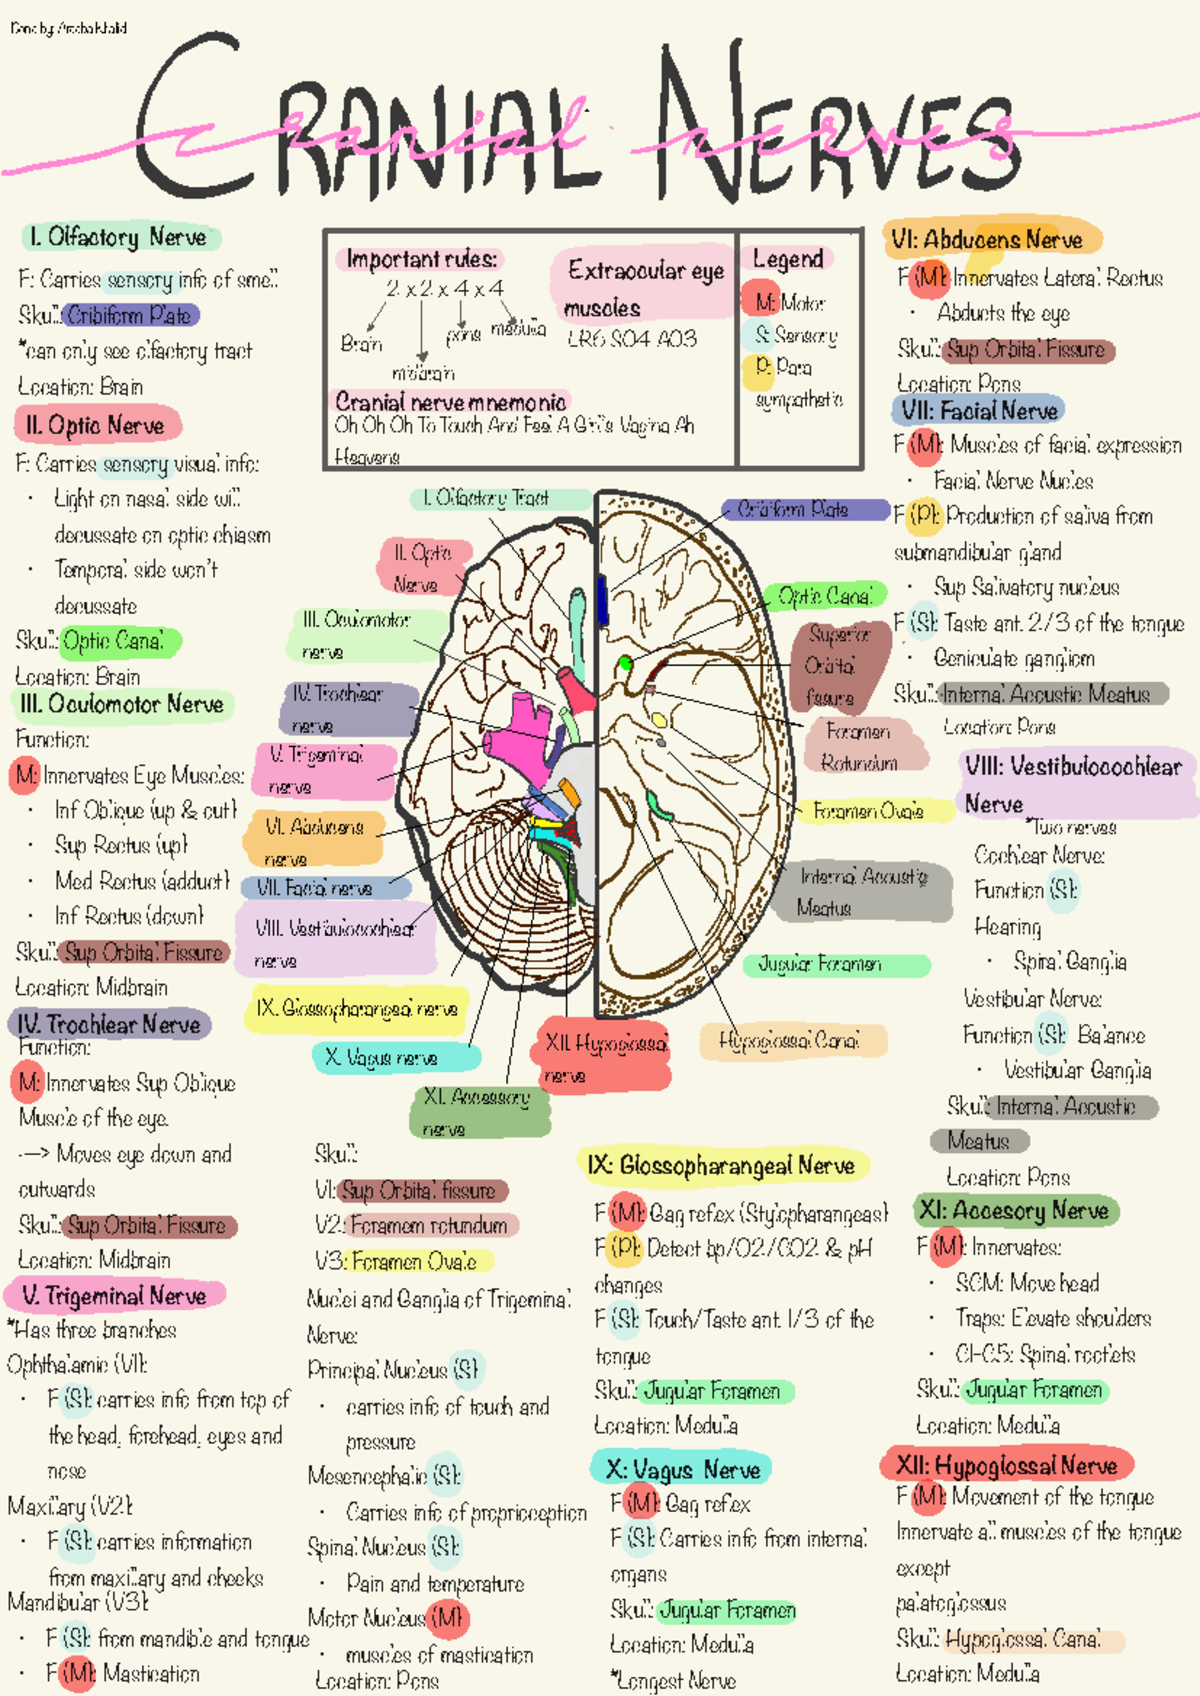 Done by: Areeba Khalid
CRANIAL NERVES
cranial nerves
I. Olfactory Nerve
F: Carries sensory info of smell
Skull: Cribiform Plate
*can only see olfactory tract
Location: Brain
II. Optic Nerve
F: Carries sensory visual info:
• Light on nasal side will
decussate on optic chiasm
• Temporal side won't
decussate
Skull: Optic Canal
Location: Brain
III. Oculomotor Nerve
Function:
M: Innervates Eye Muscles:
• Inf Oblique (up & out)
• Sup Rectus (up)
• Med Rectus (adduct)
• Inf Rectus (down)
Skull: Sup Orbital Fissure
Location: Midbrain
IV. Trochlear Nerve
Function:
M: Innervates Sup Oblique
Muscle of the eye.
--> Moves eye down and
outwards
Skull: Sup Orbital Fissure
Location: Midbrain
V. Trigeminal Nerve
*Has three branches
Ophthalamic (V1):
• F (S): carries info from top of
the head, forehead, eyes and
nose
Maxillary (V2):
• F (S): carries information
from maxillary and cheeks
Mandibular (V3):
• F (S): from mandible and tongue
• F (M): Mastication
Important rules:
2 x 2 x 4 x 4
Brain
midbrain
pons
medulla
Extraocular eye
muscles
LR6 SO4 AO3
Cranial nerve mnemonic
Oh Oh Oh To Touch And Feel A Girl's Vagina Ah
Heavens
Legend
M: Motor
S: Sensory
P: Para
sympathetic
I. Olfactory Tract
II. Optic
Nerve
III. Oculomotor
nerve
IV. Trochlear
nerve
V. Trigeminal
nerve
VI. Abducens
nerve
VII. Facial nerve
VIII. Vestibulocochlear
nerve
IX. Glossopharangeal nerve
X. Vagus nerve
XI. Accessory
nerve
XII. Hypoglossal
nerve
Cribiform Plate
Optic Canal
Superior
Orbital
fissure
Foramen
Rotundum
Foramen Ovale
Internal Acoustic
Meatus
Jugular Foramen
Hypoglossal Canal
Skull:
V1: Sup Orbital fissure
V2: Foramem rotundum
V3: Foramen Ovale
Nuclei and Ganglia of Trigeminal
Nerve:
Principal Nucleus (S):
• carries info of touch and
pressure
Mesencephalic (S):
• Carries info of proprioception
Spinal Nucleus (S):
• Pain and temperature
Motor Nucleus (M):
• muscles of mastication
Location: Pons
IX: Glossopharangeal Nerve
F (M): Gag reflex (Stylopharangeas)
F (P): Detect bp/O2/CO2 & pH
changes
F (S): Touch/Taste ant. 1/3 of the
tongue
Skull: Jugular Foramen
Location: Medulla
X: Vagus Nerve
F (M): Gag reflex
F (S): Carries info from internal
organs
Skull: Jugular Foramen
Location: Medulla
*Longest Nerve
VI: Abducens Nerve
F (M): Innervates Lateral Rectus
• Abducts the eye
Skull: Sup Orbital Fissure
Location: Pons
VII: Facial Nerve
F (M): Muscles of facial expression
• Facial Nerve Nucles
F (P): Production of saliva from
submandibular gland
• Sup Salivatory nucleus
F (S): Taste ant. 2/3 of the tongue
• Geniculate gangliom
Skull: Internal Accustic Meatus
Location: Pons
VIII: Vestibulocochlear
Nerve
*Two nerves
Cochlear Nerve:
Function (S):
Hearing
• Spiral Ganglia
Vestibular Nerve:
Function (S): Balance
• Vestibular Ganglia
Skull: Internal Accustic
Meatus
Location: Pons
XI: Accesory Nerve
F (M): Innervates:
• SCM: Move head
• Traps: Elevate shoulders
• C1-C5: Spinal rootlets
Skull: Jugular Foramen
Location: Medulla
XII: Hypoglossal Nerve
F (M): Movement of the tongue
Innervate all muscles of the tongue
except
palatoglossus
Skull: Hypoglossal Canal
Location: Medulla